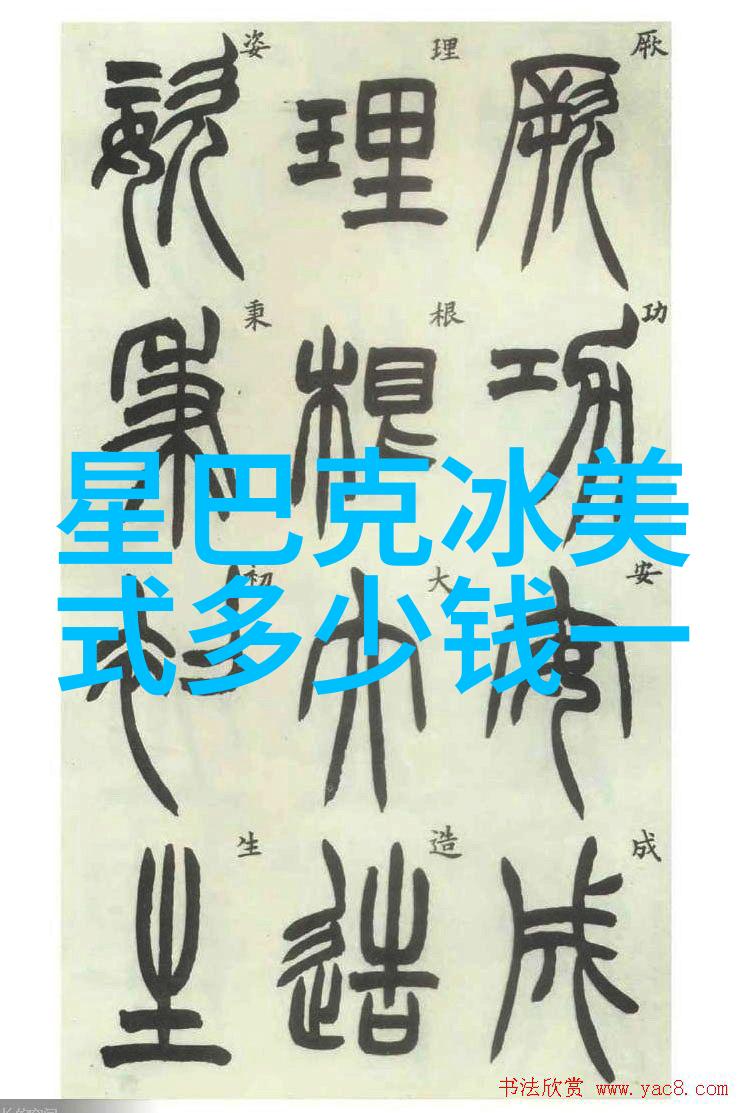 厥功安成
理根大造
姿秉初生
星巴克冰美
式多少钱一
书法欣赏 www.yac8.com